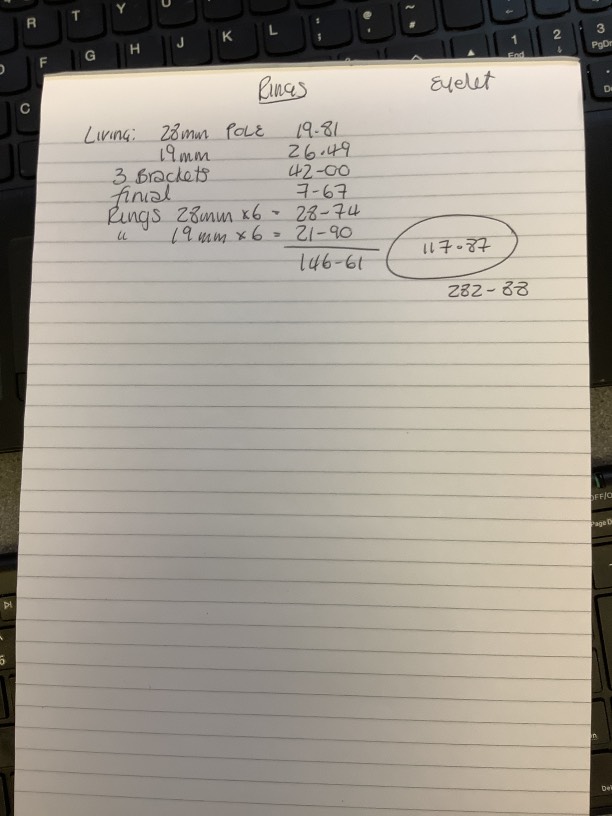 Rings Eyelet
Living: 28mm POLE 19-81
19mm 26.49
3 Brackets 42-00
finial 7-67
Rings 28mm x6 = 28-74
" 19mm x6 = 21-90
146-61 117.87
282-88